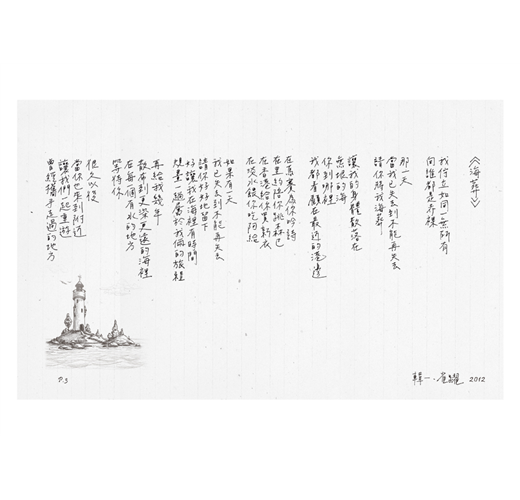 《海葬》
我佇立如同一無所有
向誰都是赤裸
那一天
當我已失去到不能再失去
請你將我海葬
讓我的身體散落在
無垠的海
你到哪裡
我都看顧在最近的港邊
在高雄為你吟詩
在里約陪你跳森巴
在香港給你買新衣
在淡水餵你吃阿給
如果有一天
我已失去到不能再失去
請你好好地留下
好讓我在海裡有時間
一趟屬於我倆的旅程
再給我幾年
散布到更深更遠的海裡
在每個有水的地方
等待你
很久以後
當你也來到附近
讓我們一起重遊
曾經攜手走過的地方
P.3
韓一.崔 2012